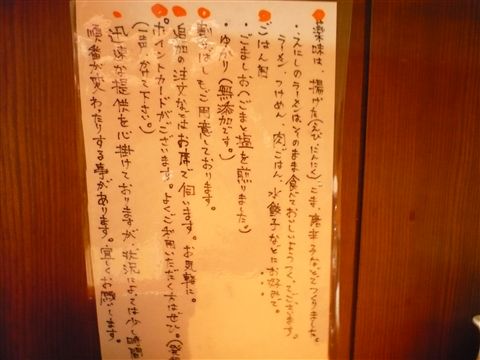 薬味は、揚げた(えび、にんにく)、ごま、唐辛子などでつくりました。
・えにしのラーメンはそのまま食べておいしいようにつくっております。
ラーメン、つけめん、肉ごはん、水餃子などにお好みで。
ごはん用
・ごましお(ごまと塩を煎りました)
・ゆかり(無添加です。)
割りばしもご用意しております。
追加の注文などはお席で伺います。お気軽に。
ポイントカードがございます。よくご利用いただく方はぜひ。
(1日1かい下さい。)
迅速な提供を心掛けておりますが、状況においては
順番が変わったりする事があります。宜しくお願いします。